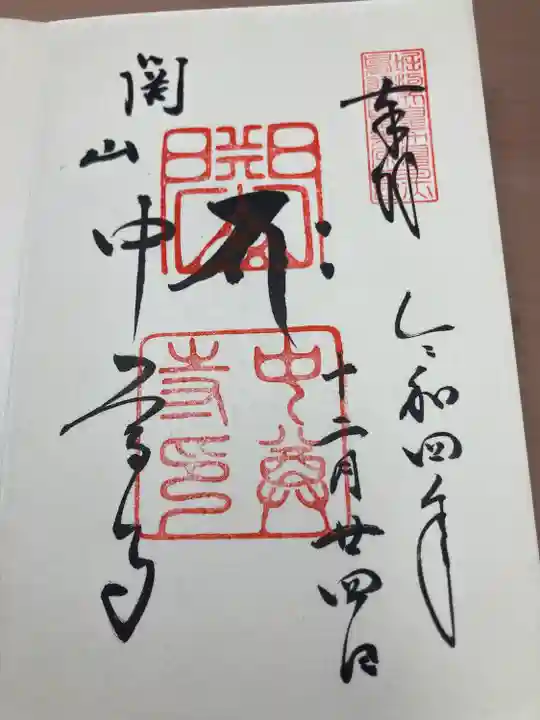 奉拝
令和四年
十二月廿四日
関山
中尊寺
関山
中尊寺印